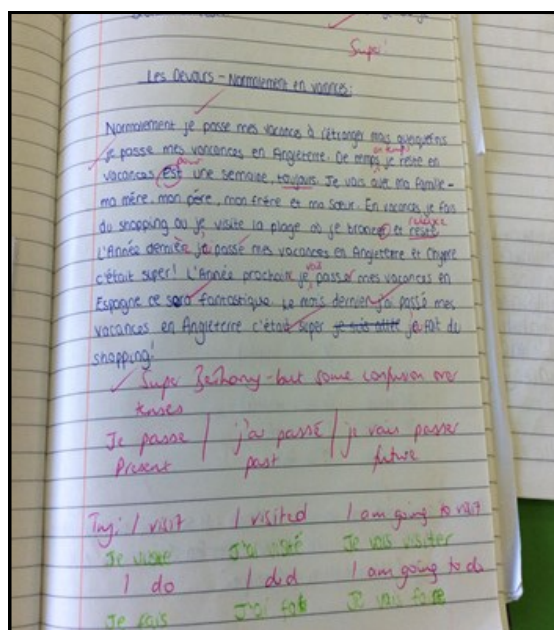 Super!
Les Devoirs - Normalement en vacances:
Normalement je passe mes vacances à l'étranger mais quelquefois
je passe mes vancances en Angleterre. De temps en temps je reste en
vacances Est pour une semaine, toujours. Je vais avec ma famille-
ma mère, mon père, mon frère et ma sœur. En vacances je fais
du shopping ou je visite la plage où je bronce et reste relaxe
L'Année dernière j'ai passé mes vacances en Angleterre et Chypre
c'était super! L'Année prochain je vais passer mes vacances en
Espagne ce sera fantastique. Le mois dernier j'ai passé mes
vacances en Angleterre c'était super je fait du
shopping!
Super Bethany - but some confusion over
tenses
Je passe | j'ai passé | je vais passer
Present past future
Try: I visit I visited I am going to visit
Je visite J'ai visité Je vais visiter
I do I did I am going to do
Je fais J'ai fait Je vais faire